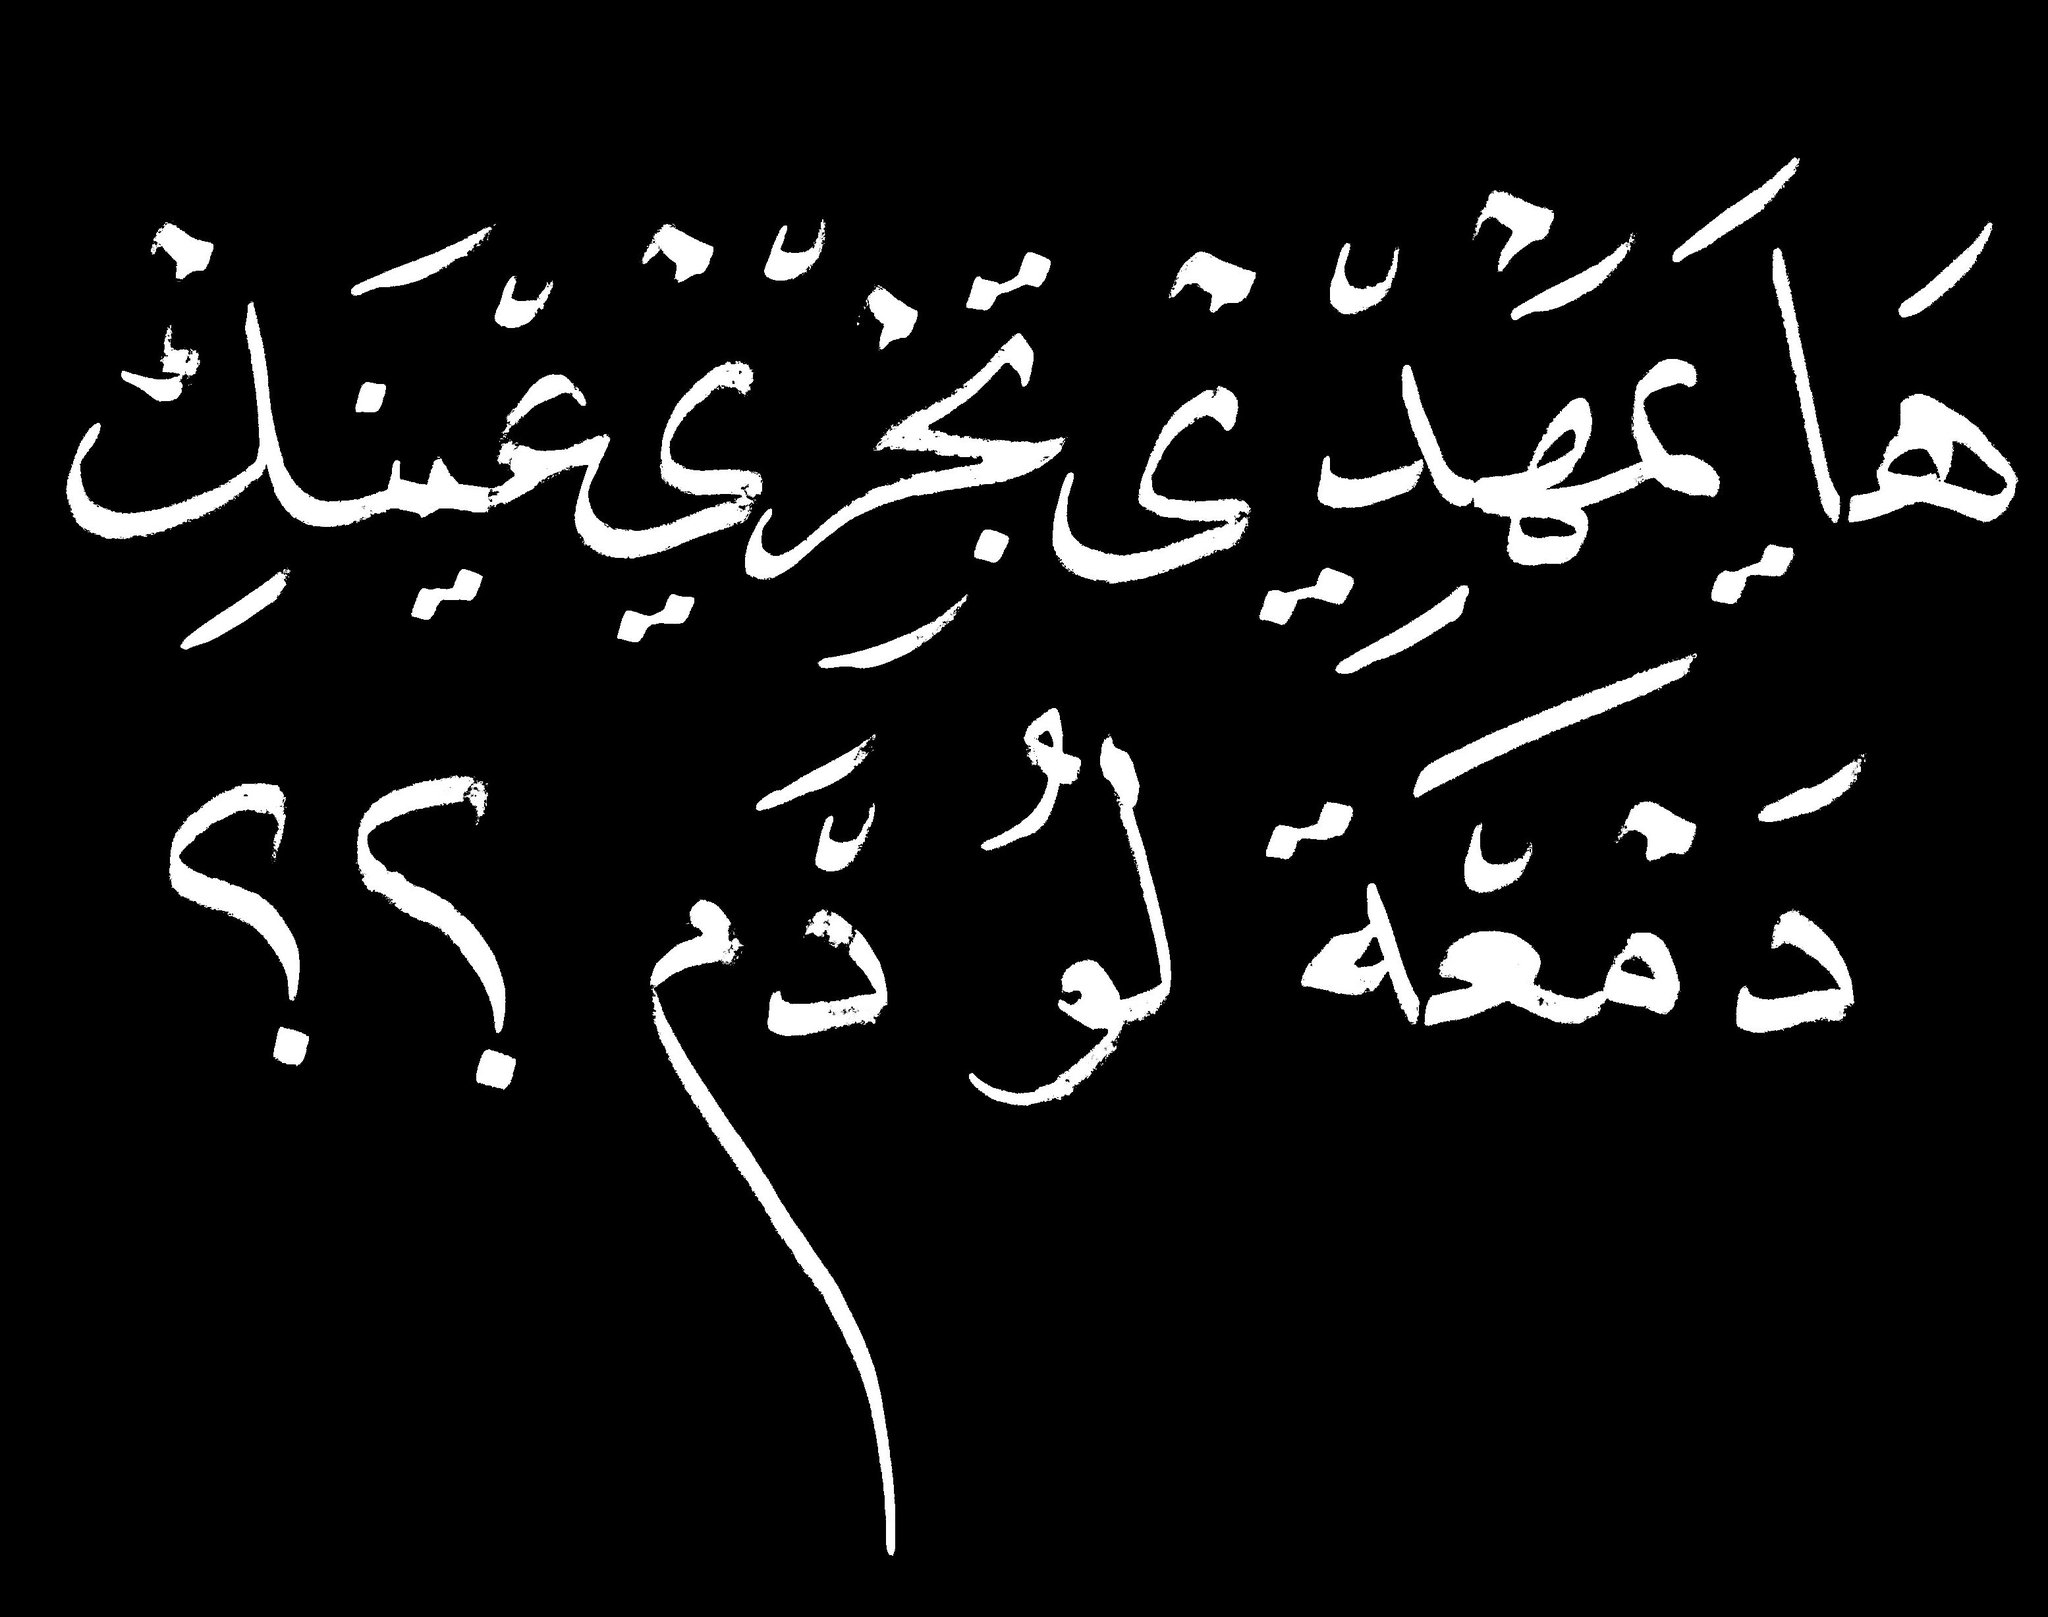 هَا يَمَهْدِيّْ تِجْرّيْ عيّنَكِْ
دَمْعّة لوُ دَّم ؟؟